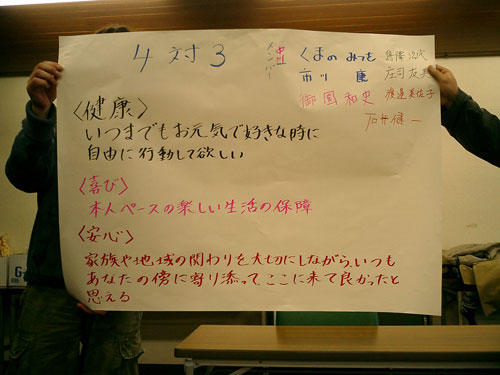 4対3
メンバー
くまの みつを
市川
御園 和史
庄司友
渡邊美佐子
石井健一
〈健康〉
いつまでもお元気で好きな時に
自由に行動して欲しい
〈喜び〉
本人ペースの楽しい生活の保障
〈安心〉
家族や地域の関わりを大切にしながら、いつも
あなたの傍に寄り添って、ここに来て良かったと
思える
G